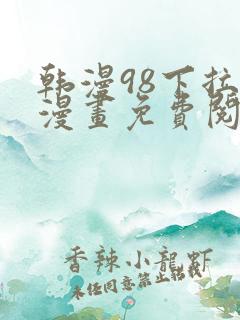 韩漫98下拉
漫畫免費閱
香辣小龍虾
未经同意禁止转载